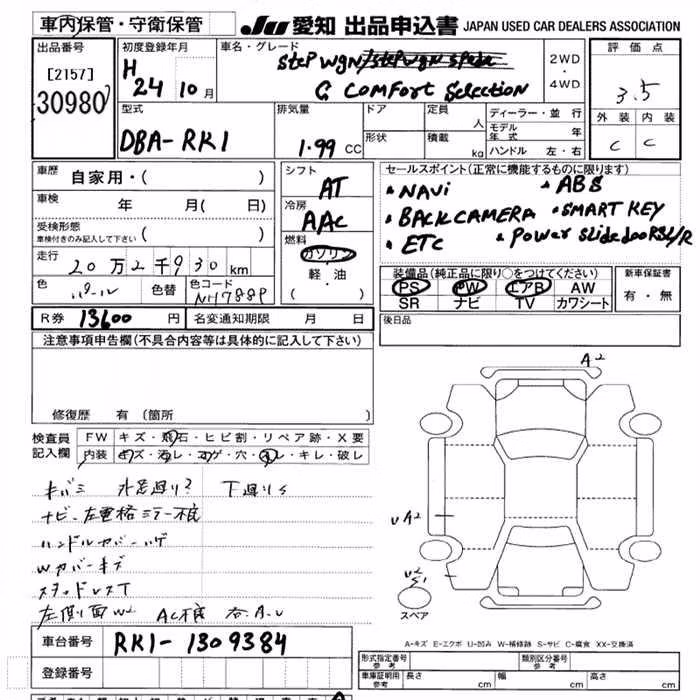 車内保管・守衛保管
JU 愛知 出品申込書 JAPAN USED CAR DEALERS ASSOCIATION
出品番号
[2157]
30980
初度登録年月
H 24 10月
車名・グレード
Step WGN
G Comfort Selection
2WD
・
4WD
評価点
3.5
外装 内装
C C
型式
DBA-RK1
排気量
1.99 CC
ドア
形状
定員 人
積載 kg
ディーラー・並行
モデル年式 年
ハンドル 左・右
車歴
自家用・( )
車検 年 月( 日)
受検形態
車検付きのみ記入して下さい ( )
走行
20万2千930km
色
パール
色替
色コード
NH788P
シフト
AT
冷房
AAC
燃料
ガソリン
・
軽・油
( )
セールスポイント(正常に機能するものに限ります)
・NAVi ・ABS
・BACK CAMERA ・SMART KEY
・ETC ・Power Slide door R/L/R
装備品(純正品に限り○をつけてください)
PS PW エアB AW
SR ナビ TV カワシート
新車保証書
有・無
R券 13600 円
名変通知期限 月 日
後日品
注意事項申告欄(不具合内容等は具体的に記入して下さい)
修復歴 有(箇所
検査員
記入欄
FW キズ・飛石・ヒビ割・リペア跡・X要
内装 キズ・汚レ・コゲ・穴・スレ・キレ・破レ
キバミ 下廻りS
ナビ・左電格ミラー不良
ハンドルカバーハゲ
Wカバーキズ
スタッドレスT
左側面W2 AC不良 各A.U
A2
UA2
U2
S1
スペア
A-キズ E-エクボ U-凹み W-補修跡 S-サビ C-腐食 XX-交換済
車台番号 RK1-1309384
登録番号
形式指定番号
参考
類別区分番号
参考
車庫証明用
参考
長さ 幅 高さ